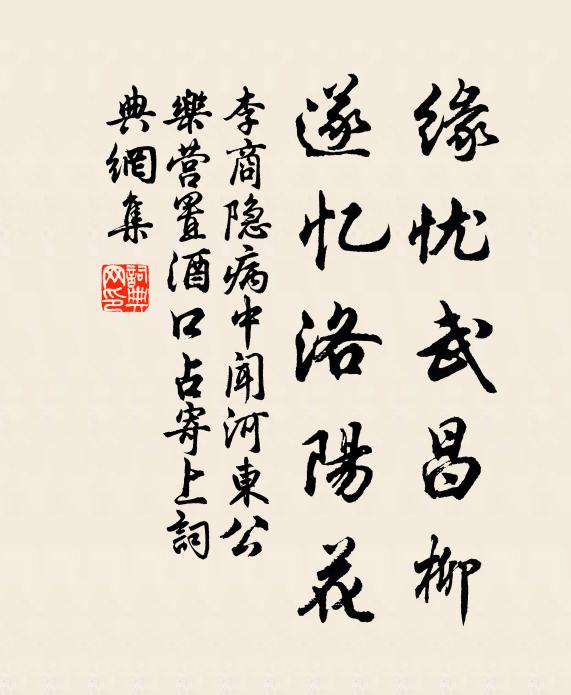 缘忧武昌柳
遂忆洛陽花
李商隐病中闻河東公
樂营置酒口占寄上詞
典網集
詞典网印